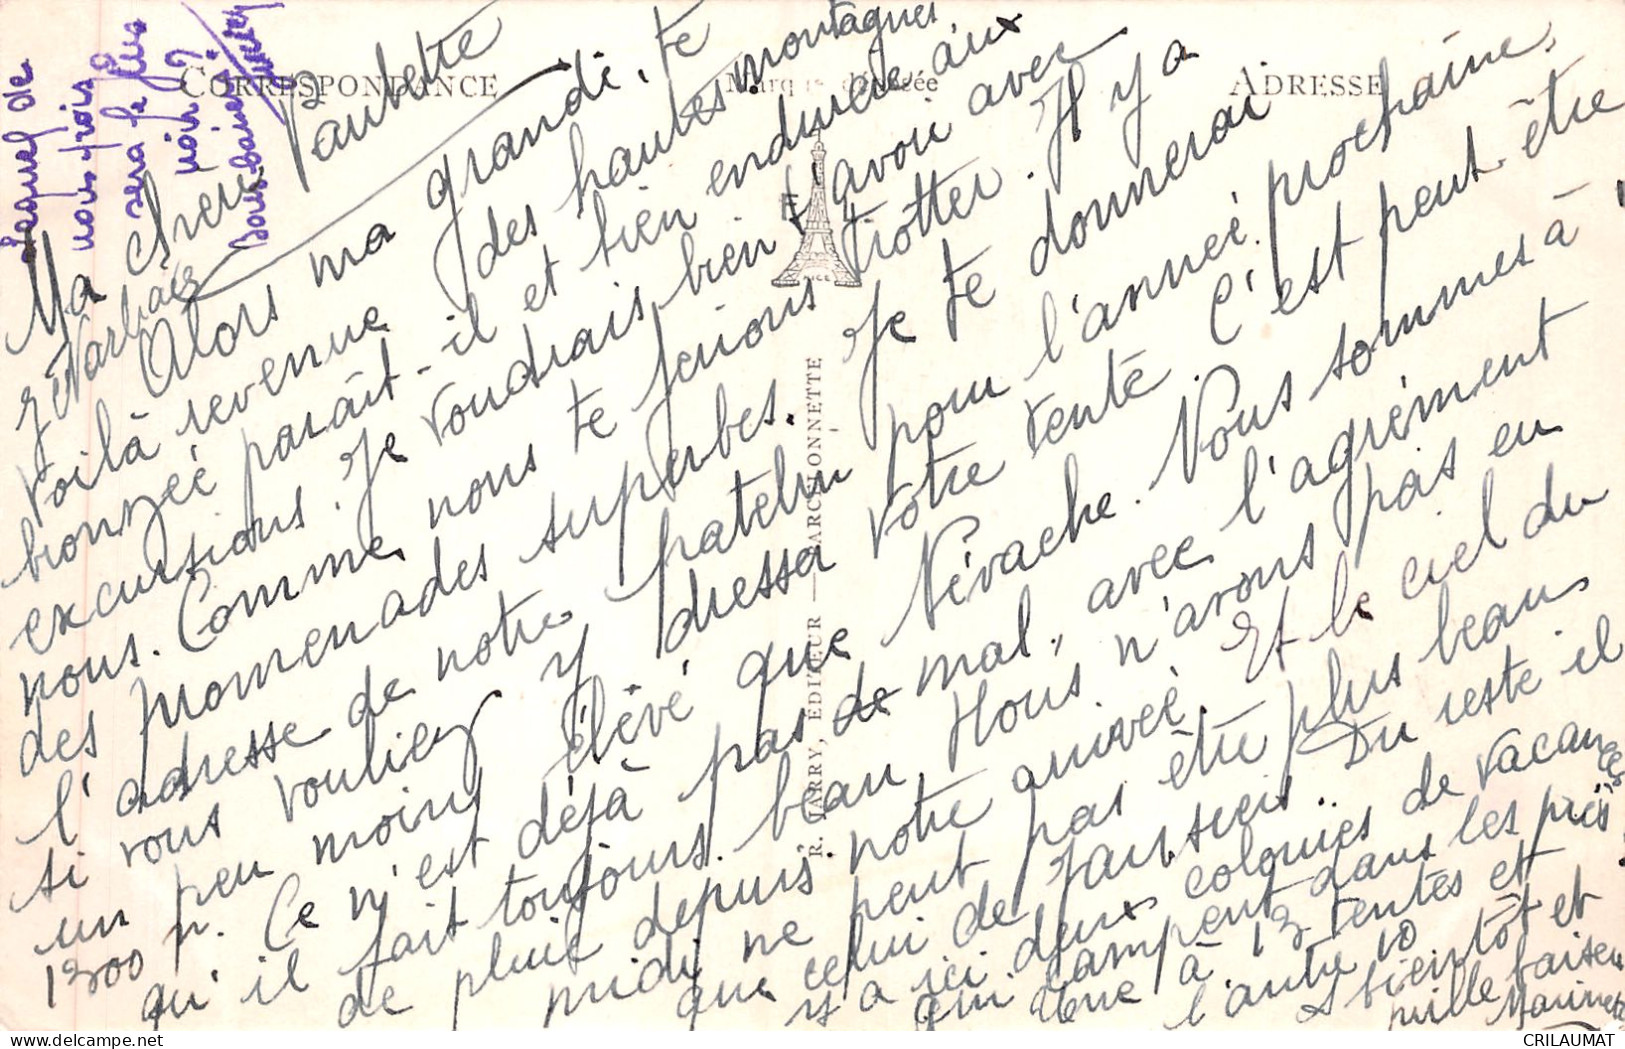 CORRESPONDANCE
Marque déposée
ADRESSE
Lequel de
nous trois
sera le plus
noir ?
Bons baisers
Ma chère Paulette
Alors ma grande, te
voilà revenue des hautes montagnes,
bronzée paraît-il et bien endurcie aux
excursions. Je voudrais bien t'avoir avec
nous. Comme nous te ferions trotter. Il y a
des promenades superbes. Je te donnerai
l'adresse de notre patelin pour l'année prochaine,
si vous vouliez y dresser votre tente. C'est peut-être
un peu moins élevé que Névache. Nous sommes à
1300 m. Ce n'est déjà pas mal, avec l'agrément
qu'il fait toujours beau. Nous n'avons pas eu
de pluie depuis notre arrivée. Et le ciel du
midi ne peut pas être plus beau
que celui de Jausiers.. Du reste il
y a ici deux colonies de vacances
qui campent dans les prés
une à 13 tentes et
l'autre 10
A bientôt et
mille baisers
R. JARRY, EDITEUR — BARCELONNETTE
NICE
CRILAUMAT